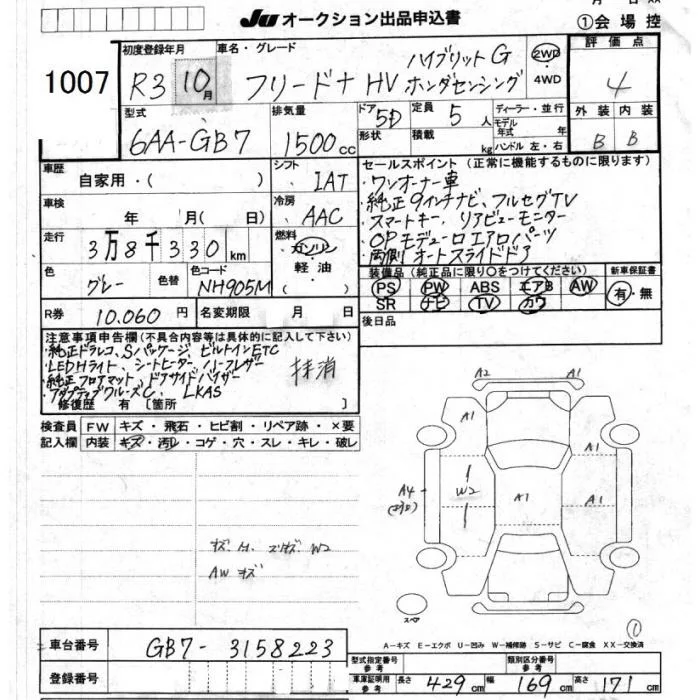 JU オークション出品申込書
①会場控
1007
初度登録年月
R3 10月
車名・グレード
フリードナ HV
ハイブリットG
ホンダセンシング
2WD
・
4WD
評価点
4
型式
6AA-GB7
排気量
1500cc
ドア 5D
形状
定員 5人
積載 kg
ディーラー・並行
モデル年式 年
ハンドル 左・右
外装 内装
B B
車歴
自家用・( )
シフト
IAT
車検
年 月( 日)
冷房
AAC
走行
3万8千330km
燃料
ガソリン
軽油
( )
色
グレー
色替
色コード
NH905M
セールスポイント(正常に機能するものに限ります)
・ワンオーナー車
・純正9インチナビ、フルセグTV
・スマートキー、リアビューモニター
・OPモデューロエアロパーツ
・両側オートスライドドア
装備品(純正品に限り○をつけてください)
PS PW ABS エアB AW
SR ナビ TV カワ
新車保証書
有・無
R券 10.060円
名変期限 月 日
後日品
注意事項申告欄(不具合内容等は具体的に記入して下さい)
・純正ドラレコ、Sパッケージ、ビルトインETC
・LEDHライト、シートヒーター、ハーフレザー
・純正フロアマット、ドアサイドバイザー
・アダプティブクルーズC、LKAS
抹消
修復歴 有〔箇所 〕
検査員記入欄
FW キズ・飛石・ヒビ割・リペア跡・×要
内装 キズ・汚レ・コゲ・穴・スレ・キレ・破レ
A2 A1
A1
A1
A4
W2
A1
A1
キズ.
W2
AW キズ
スペア
①
A-キズ E-エクボ U-凹み W-補修跡 S-サビ C-腐食 XX-交換済
車台番号 GB7-3158223
登録番号
型式指定番号 参考
類別区分番号 参考
車庫証明用 参考 長さ 429cm 幅 169cm 高さ 171cm